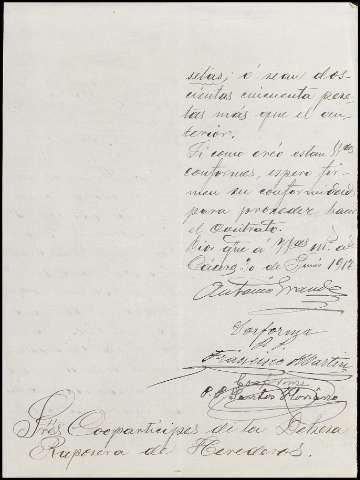 setas, ó sean dos-
cientas cincuenta pese
tas más que el an-
terior.
Si como creo estan Vdes
conformes, espero fir-
men su conformidad
para proceder hacer
el Contrato.
Dios gue á Vdes ms. as.
de Junio 1912
Antonio Grande
Conforme
P. P.
Francisco Martin
Conforme
P. P. Santos Floriano
Sres Coopartícipes de la Dehesa
Raposera de Herederos.